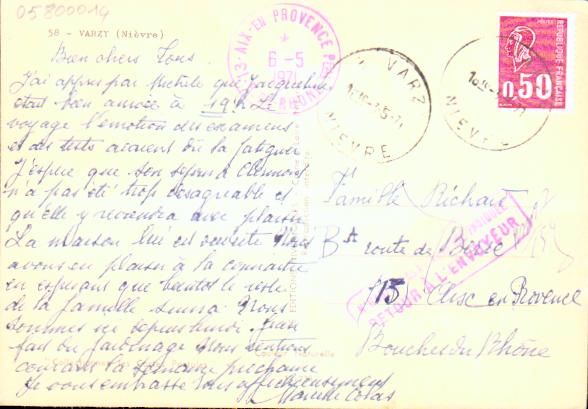 05800014
58 - VARZY (Nièvre)
Bien chers Tous.
J'ai appris par Michèle que Jacqueline
était bien arrivée à 19h. Le
voyage l'émotion des examens
et des tests avaient dû la fatiguer
J'espère que son séjour à Clermont
n'a pas été trop désagréable et
qu'elle y reviendra avec plaisir
La maison lui est ouverte Nous
avons eu plaisir à la connaitre
en espérant que bientôt le reste
de la famille suivra Nous
sommes ce depuis
fait du jardinage Nous rentrons
la semaine prochaine
Je vous embrasse tous affectueusement
Colas
13-AIX-EN-PROVENCE
6-5
1971
B. DU RHONE
VARZY
NIEVRE
VARZY
NIEVRE
POSTES
0,50
REPUBLIQUE FRANCAISE
Famille Richard
Bd route de
RETOUR A L'ENVOYEUR
13 Aix en Provence
Bouches du Rhône
Couleur Naturelle